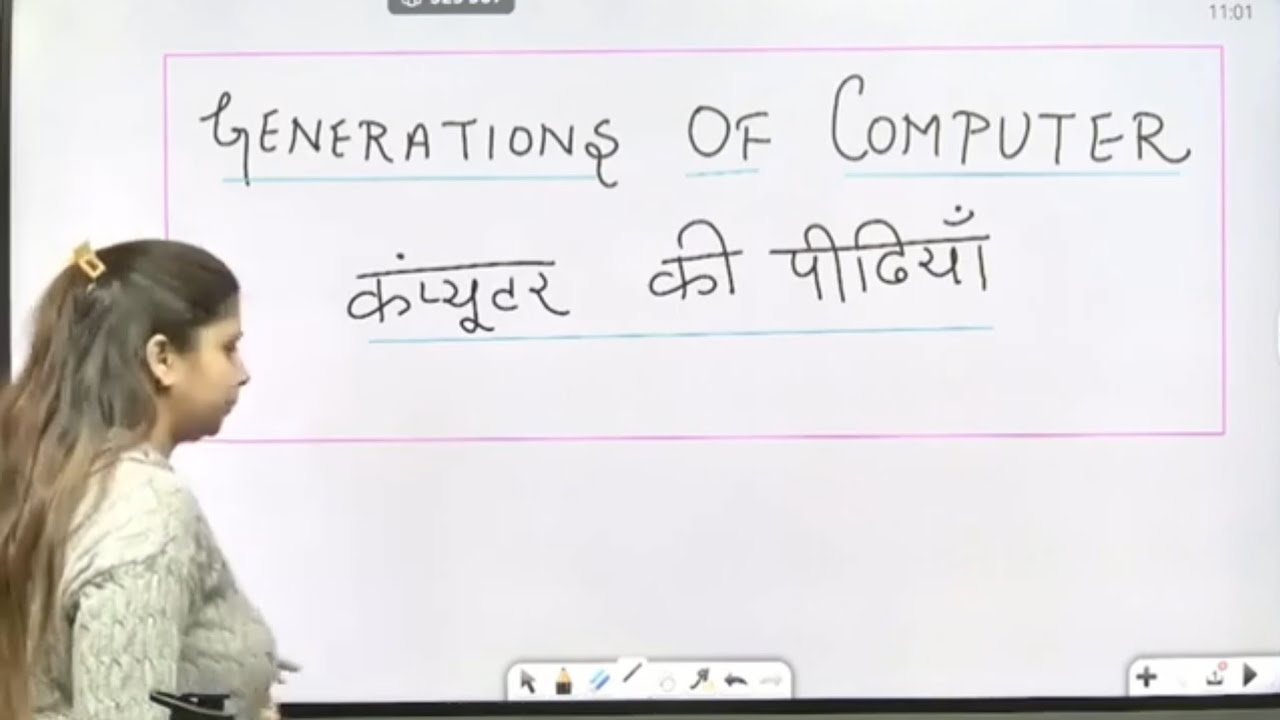 11:01
GENERATIONS OF COMPUTER
कंप्यूटर की पीढियाँ